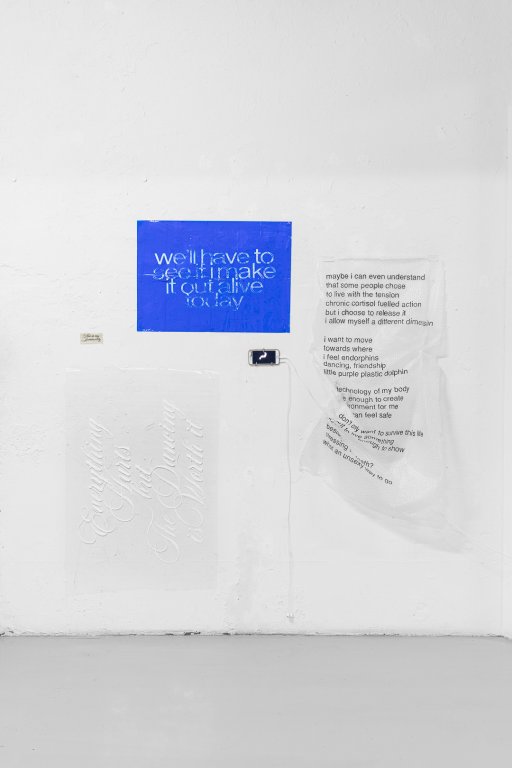 we'll have to
see if i make
it out alive
today
maybe i can even understand
that some people chose
to live with the tension
chronic cortisol fuelled action
but i choose to release it
i allow myself a different
i want to move
towards where
i feel endorphins
dancing, friendship
little purple plastic dolphin
technology of my body
enough to create
for me
can feel safe
want to survive this life
something
enough to show
what an unsexy way to go
Hurts
but
The Dancing
is Worth it